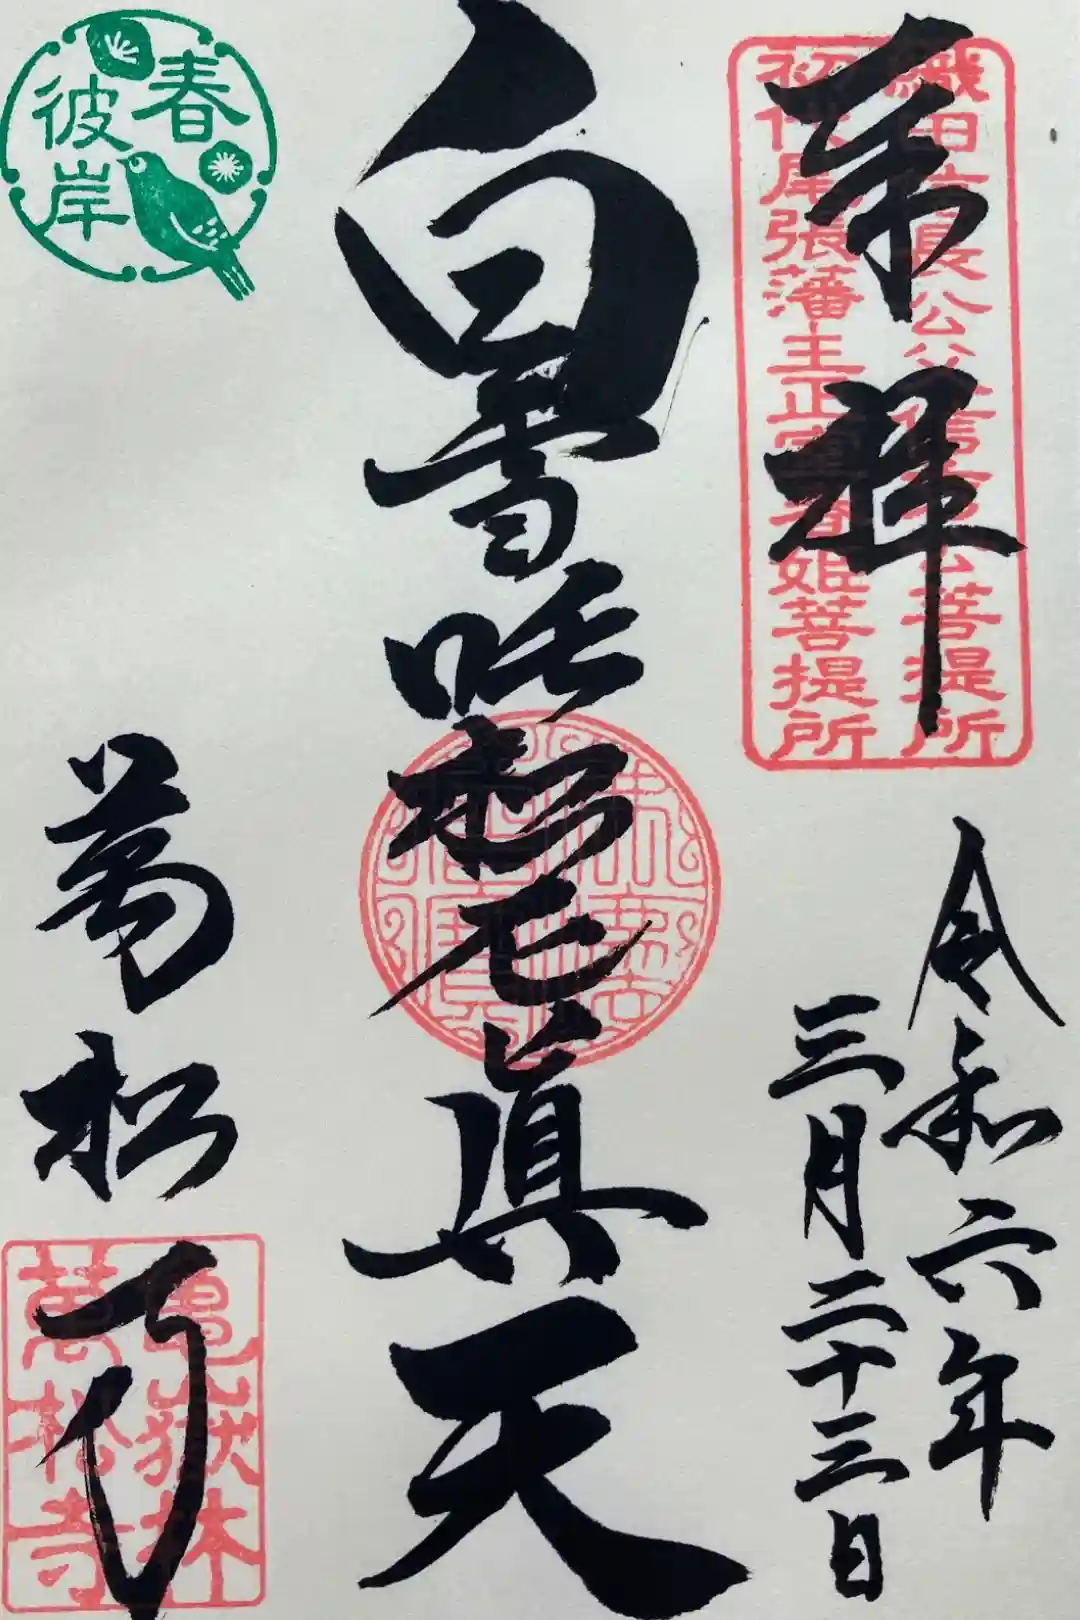 奉拝
織田信長公父信秀公菩提所
初代尾張藩主正室春姫菩提所
令和六年
三月二十三日
白雪吒枳尼眞天
春彼岸
萬松寺
亀嶽林
萬松寺